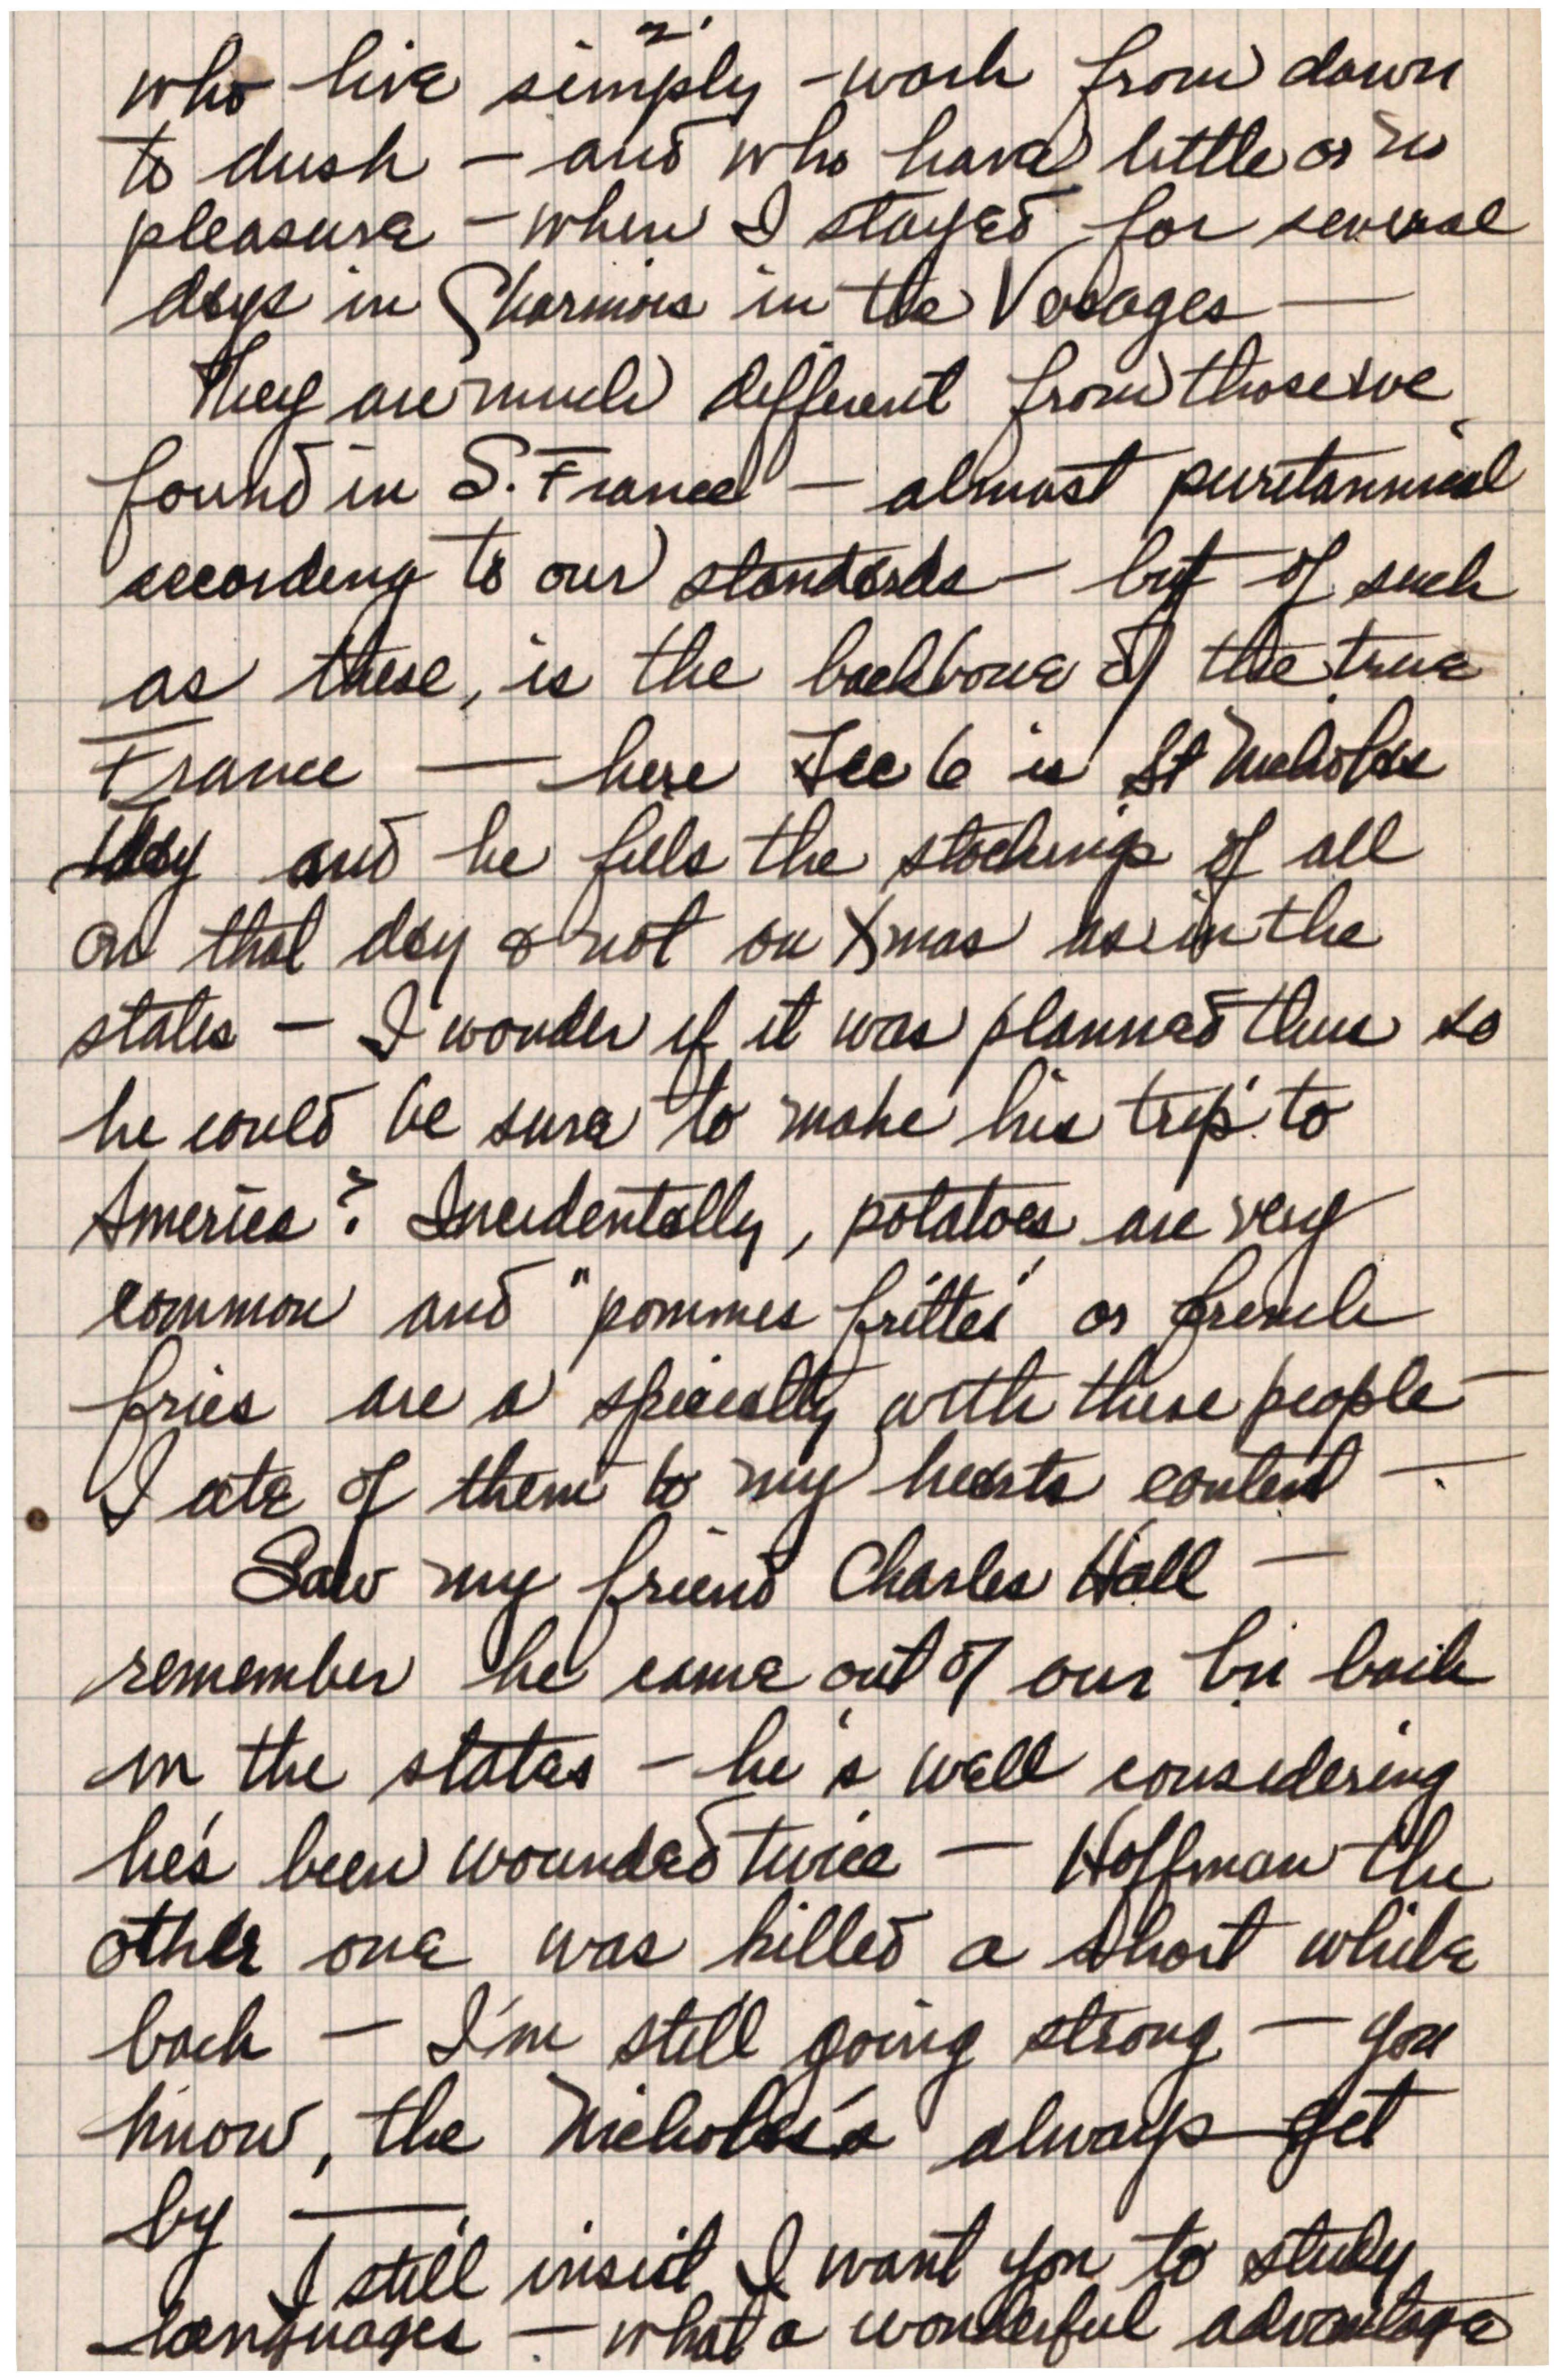 2.
who live simply - work from dawn
to dusk - and who have little or no
pleasure - when I stayed for several
days in Charmois in the Vosages -
They are much different from those we
found in S. France - almost puritannical
according to our standards - but of such
as these, is the backbone of the true
France - here Dec 6 is St Nicholas
day and he fills the stockings of all
on that day & not on Xmas as in the
states - I wonder if it was planned thus so
he could be sure to make his trip to
America? Incidentally, potatoes are very
common and "pommes frittes" or french
fries are a specialty with these people -
I ate of them to my hearts content -
Saw my friend Charles Hall -
remember he came out of our bn back
in the states - he's well considering
he's been wounded twice - Hoffman the
other one was killed a short while
back - I'm still going strong - you
know, the Nicholas's always get
by -
I still insist I want you to study
languages - what a wonderful advantage